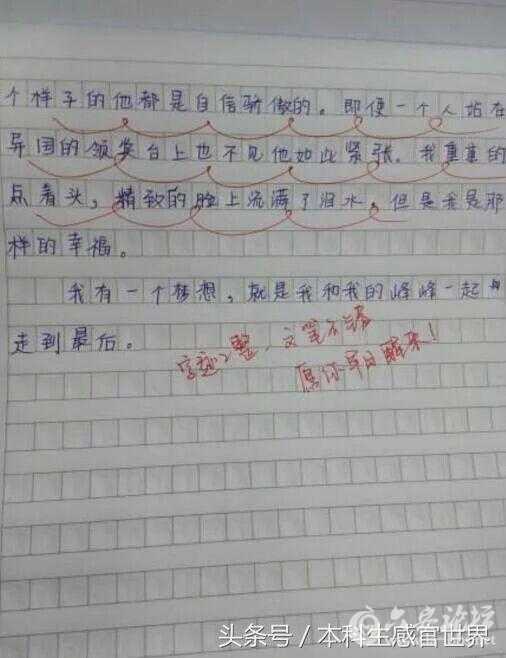 个样子的他都是自信骄傲的。即便一个人站在
异国的领奖台上也不见他如此紧张。我重重的
点着头，精致的脸上流满了泪水，但是我是那
样的幸福。
我有一个梦想，就是我和我的峰峰一起
走到最后。
字迹工整，文笔不错
愿你早日醒来！
六安论坛
头条号/本科生感官世界